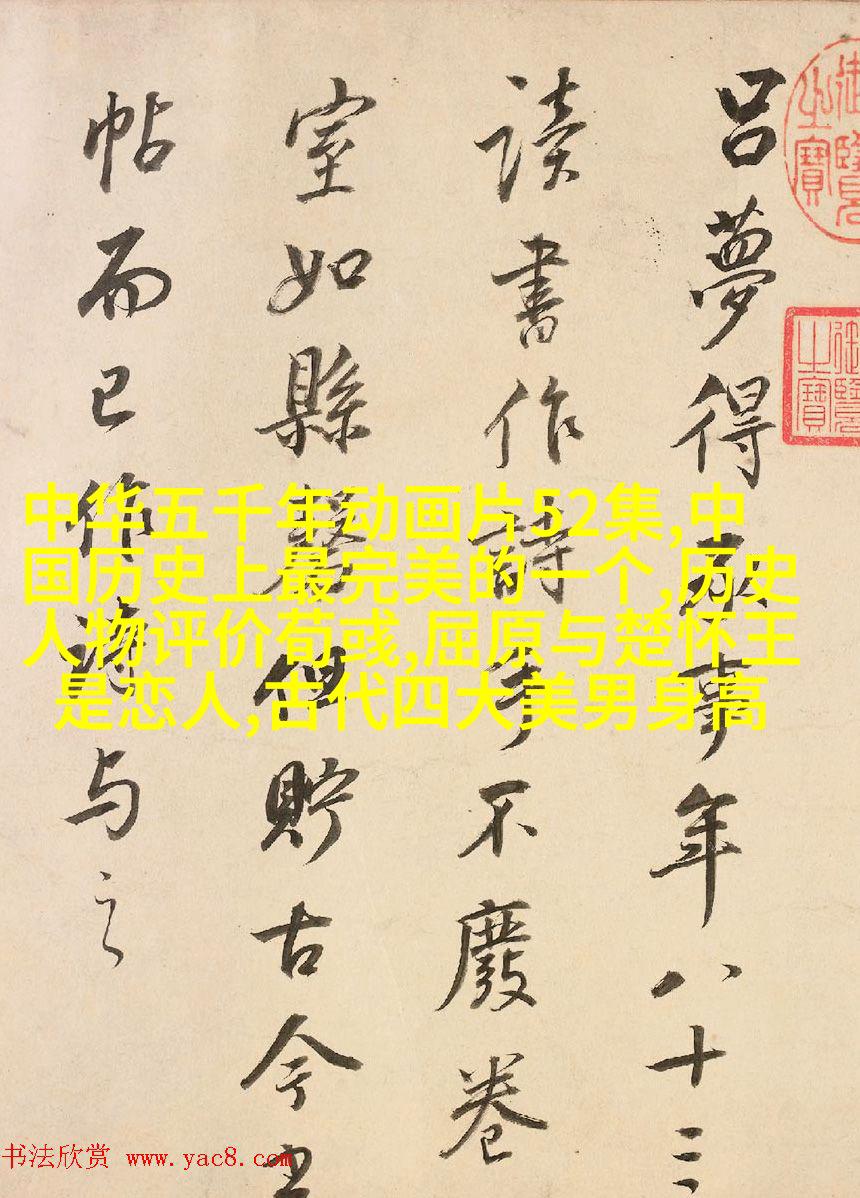 御覽之寶
御覽之寶
吕夢得承事年八十三
讀書作詩手不廢卷
室如縣罄但貯古今
帖而已作詩与之
中华五千年动画片52集,中
国历史上最完美的一个,历史
人物评价荀彧,屈原与楚怀王
是恋人,古代四大美男身高
书法欣赏 www.yac8.com